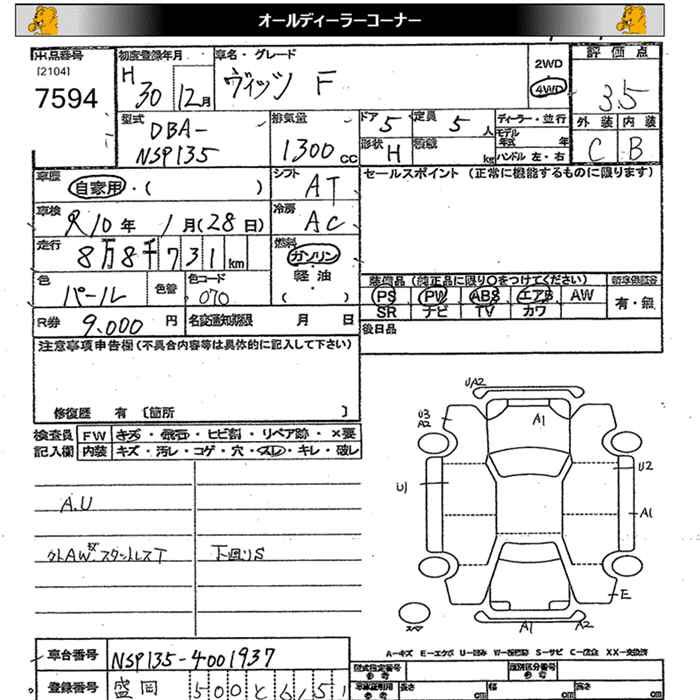 オールディーラーコーナー
出品番号
[2104]
7594
初度登録年月
H 30 12月
車名・グレード
ヴィッツ F
2WD
4WD
評価点
3.5
外装 内装
C B
型式
DBA-
NSP135
排気量
1300 cc
ドア 5
定員 5 人
形状 H
積載 kg
ディーラー・並行
モデル年式 年
ハンドル 左・右
車歴
自家用・( )
シフト
AT
セールスポイント (正常に機能するものに限ります)
車検
R10年 1月(28日)
冷房
AC
走行
8万8千731km
燃料
ガソリン
軽油
( )
色
パール
色替
色コード
070
装備品 (純正品に限り○をつけてください)
PS PW ABS エアB AW
SR ナビ TV カワ
有・無
R券 9,000 円
名変通知期限 月 日
後日品
注意事項申告欄(不具合内容等は具体的に記入して下さい)
修復歴 有 〔箇所 〕
検査員 FW キズ・飛石・ヒビ割・リペア跡・×要
記入欄 内装 キズ・汚レ・コゲ・穴・スレ・キレ・破レ
A.U
外AWキズスタットレスT
下廻りS
U/A2
U3
A2
A1
U2
U1
A1
E
スペア
A1
A2
A-キズ E-エクボ U-凹み W-補修跡 S-サビ C-腐食 XX-交換済
車台番号 NSP135-4001937
登録番号 盛岡 500と6151
型式指定番号
参考
類別区分番号
参考
長さ cm 幅 cm 高さ cm